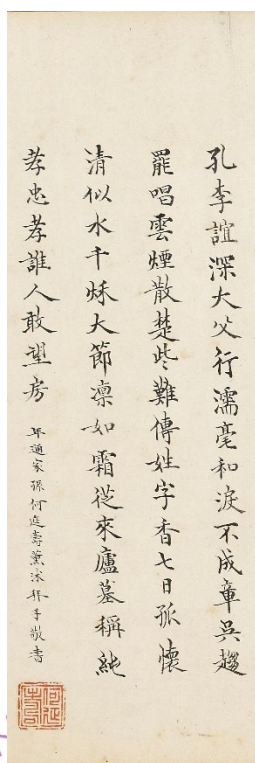 孔李誼深大父行濡毫和淚不成章吳趨
罷唱雲煙散楚些難傳姓字香七日孤懷
清似水千秌大節凛如霜從來廬墓稱純
孝忠孝誰人敢望房
年通家孫何延壽薰沐拜手敬書